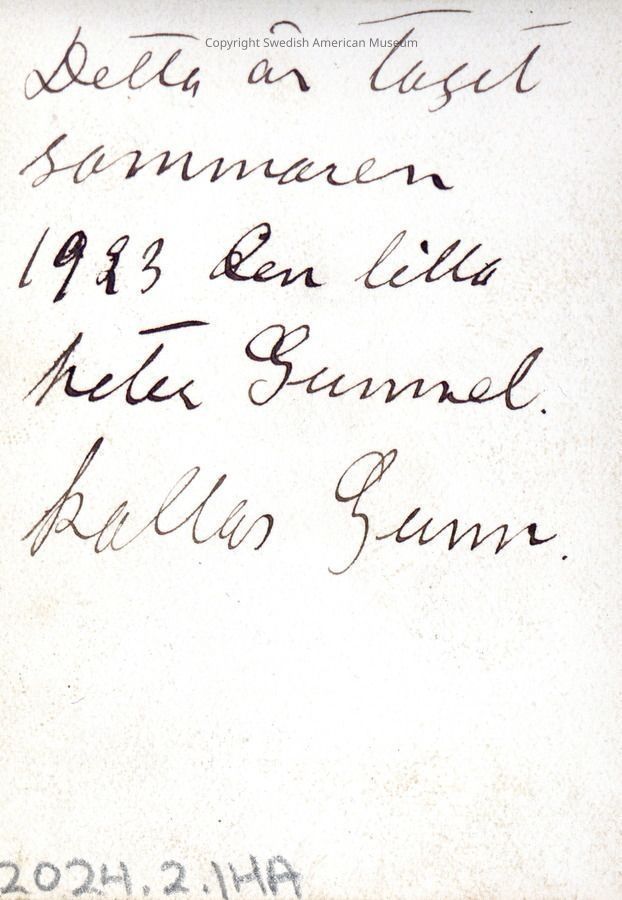 Copyright Swedish American Museum
Detta är taget
sommaren
1923 den lilla
heter Gunnel.
kallas Gunn.
2024.2.1HA